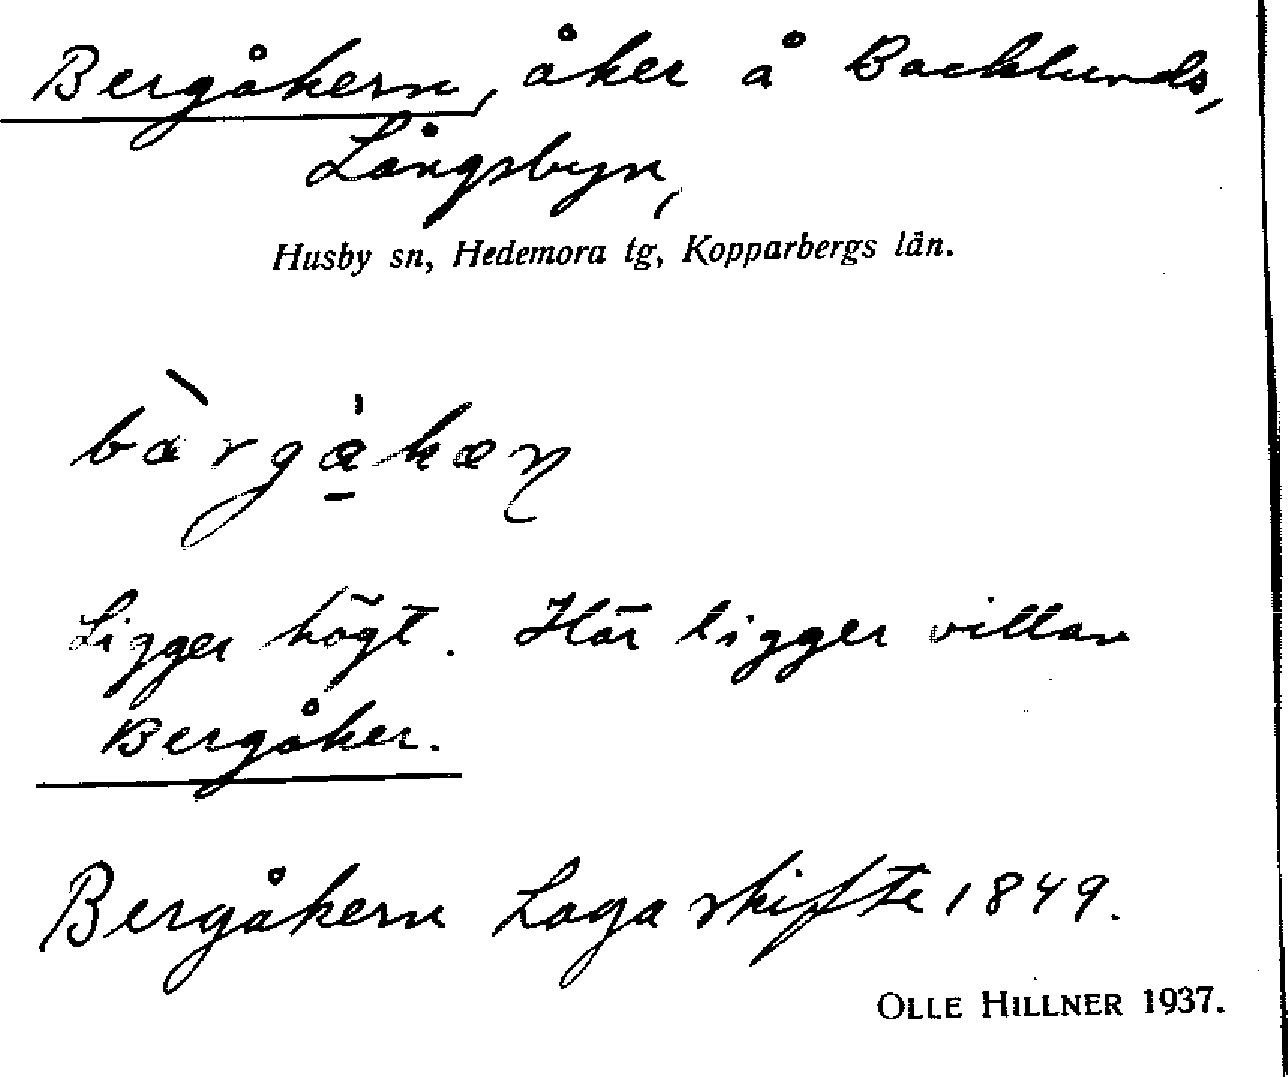 Bergåkern, åker å Backlunds,
Långsbyn,
Husby sn, Hedemora tg, Kopparbergs län.
Ligger högt. Här ligger villan
Bergåker.
Bergåkern Laga skifte 1849.
OLLE HILLNER 1937.